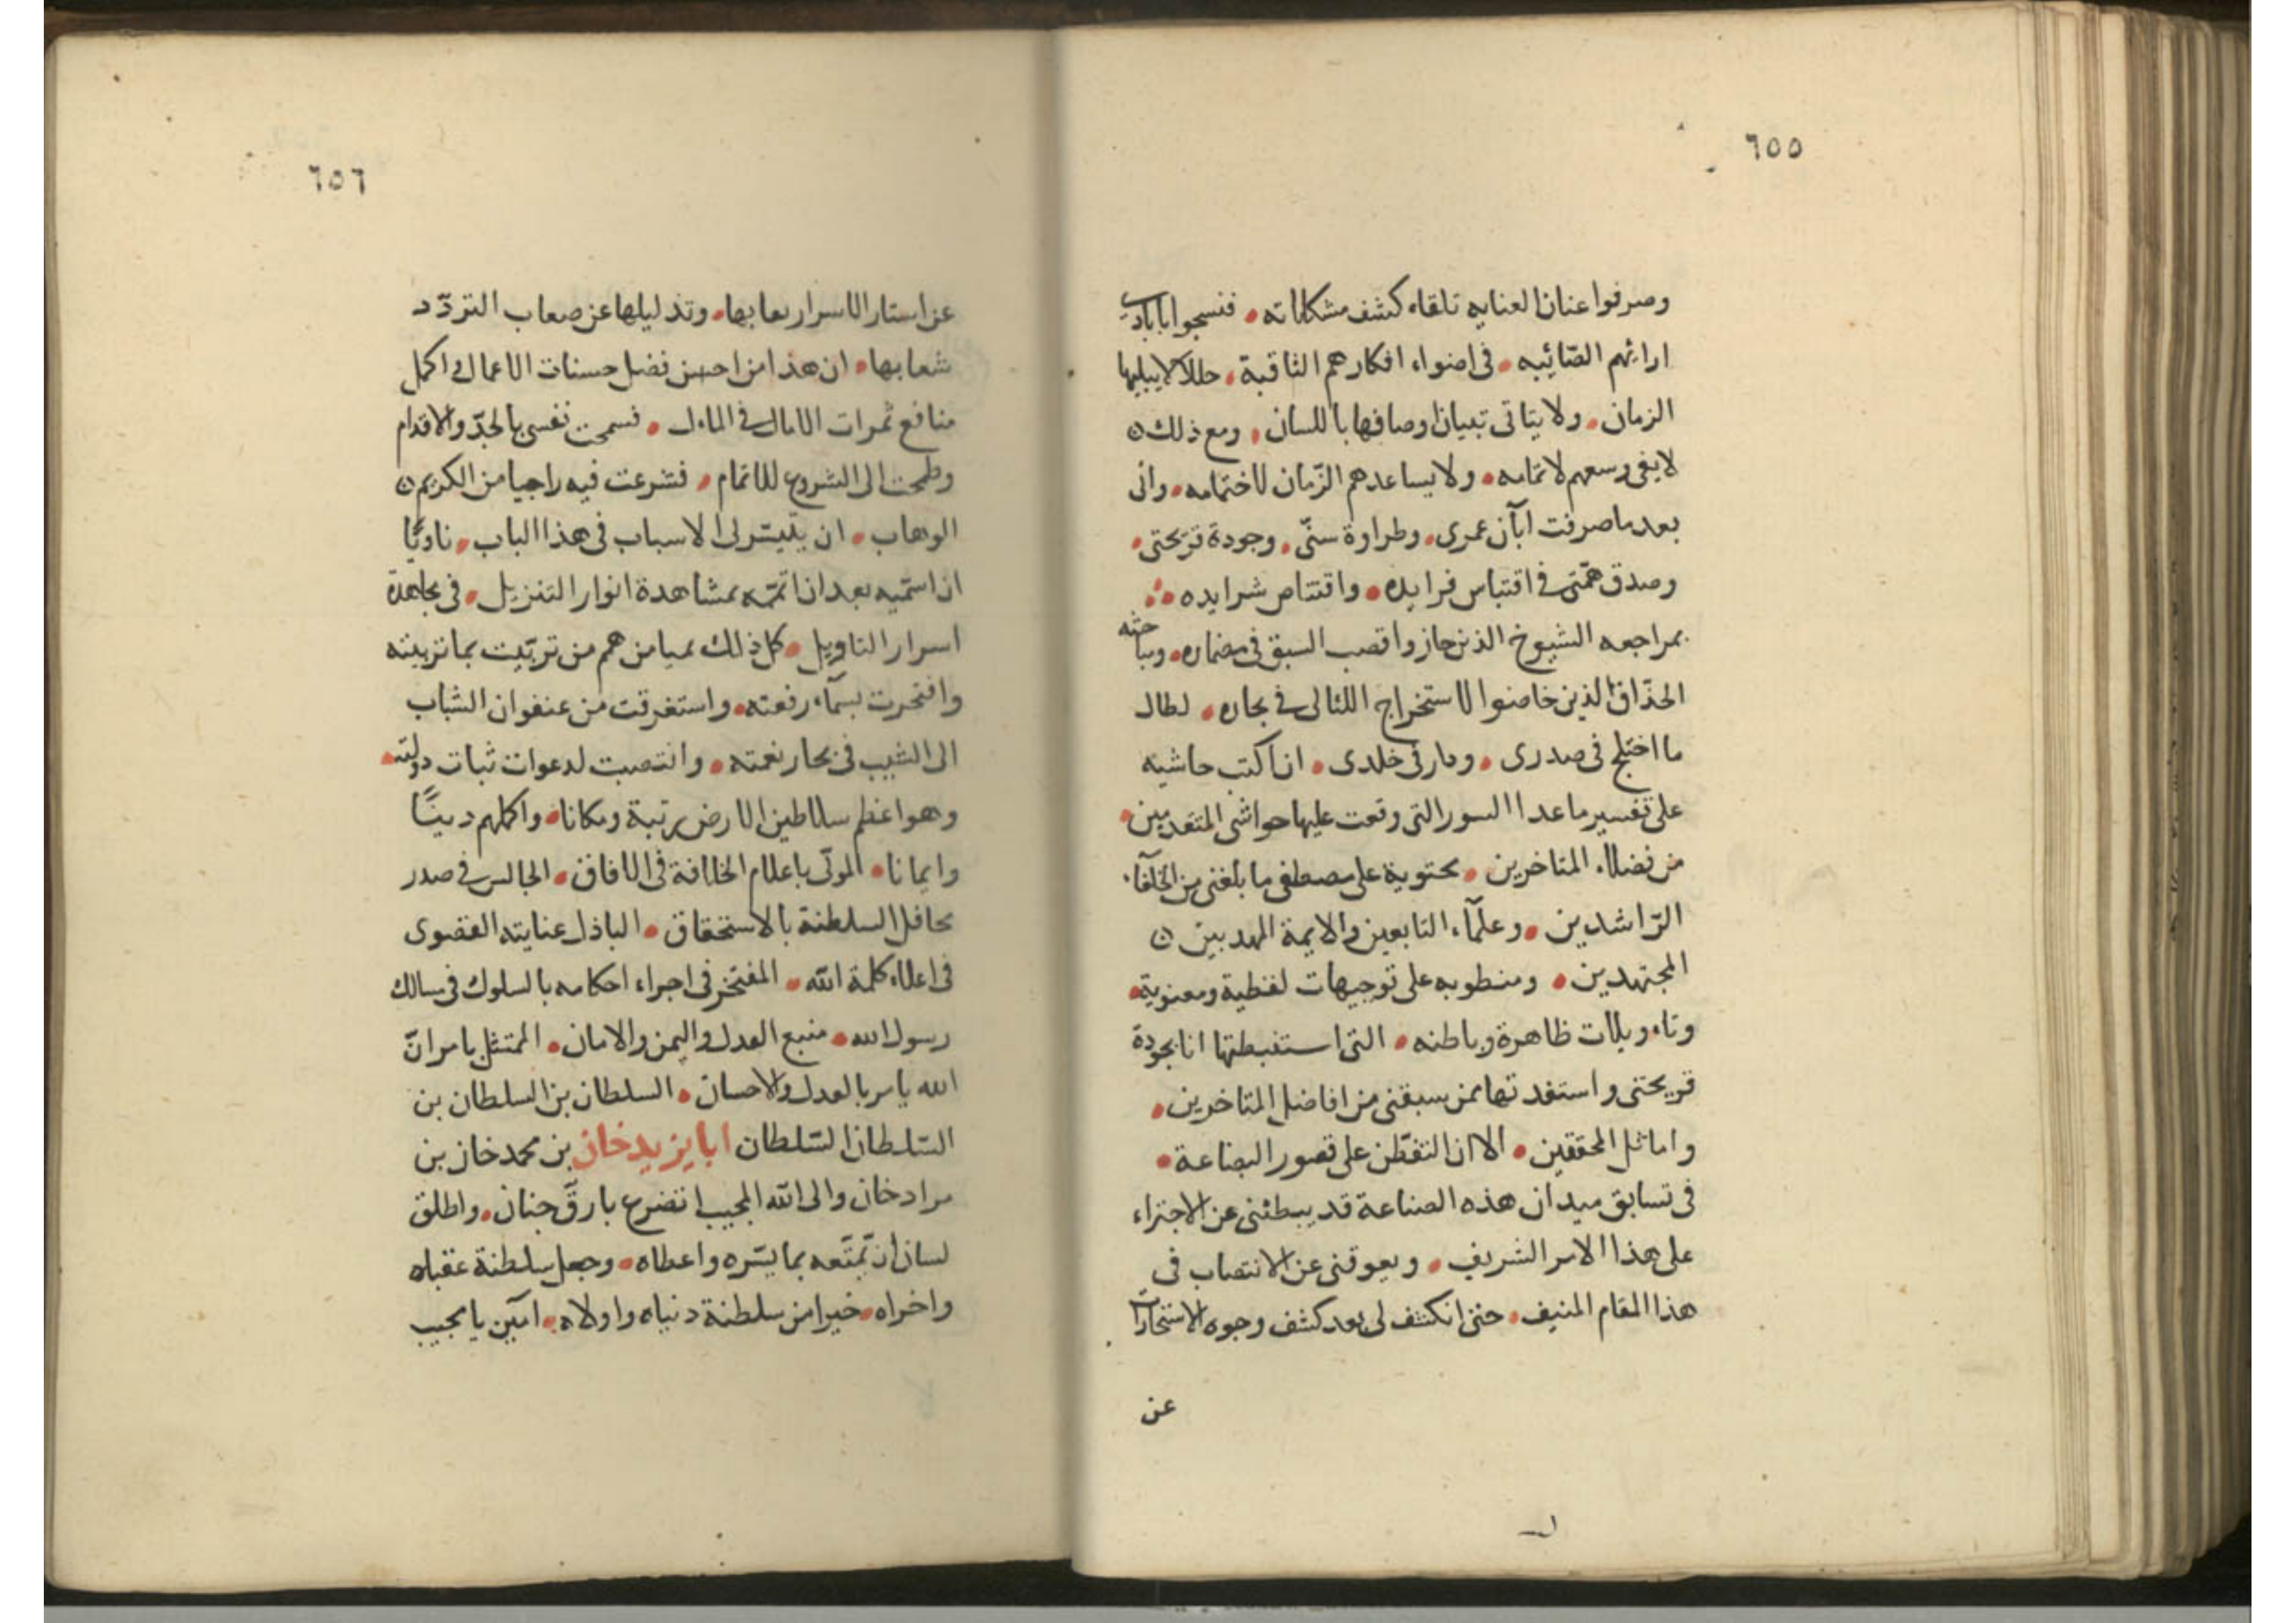 ٦٥٥
وصرفوا عنان العنايه تلقاء كشف مشكلاته • فنسجوا بايادى
ارائهم الصّائبه • فى اضواء افكارهم الثاقبة • حللا لا يبليها
الزمان • ولا يتاتى تبيان اوصافها باللسان • ومع ذلك
لا يفى وسعهم لاتمامه • ولا يساعدهم الزّمان لاختمامه • وانى
بعد ما صرفت ابّان عمرى • وطراوة سنّى • وجودة قريحتى •
وصدق همّتى فى اقتباس فرايده • واقتناص شرايده •
بمراجعه الشيوخ الذين حازوا قصب السبق فى مضماره • ومباحثه
الحذّاق الذين خاضوا لاستخراج اللئالى فى بحاره • لطال
ما اختلج فى صدرى • ودار فى خلدى • ان اكتب حاشيه
على تفسير ما عدا السور التى وقعت عليها حواشى المتقدمين •
من فضلاء المتاخرين • محتوية على مصطفى ما بلغنى من الخلفاء
الرّاشدين • وعلمآء التابعين والايمة المهديين
المجتهدين • ومنطويه على توجيهات لفظية ومعنوية •
وتاءويلات ظاهرة وباطنه • التى استنبطتها انا بجودة
قريحتى واستفدتها ممن سبقنى من افاضل المتاخرين •
واماثل المحققين • الا ان التفطّن على قصور البضاعة •
فى تسابق ميدان هذه الصناعة قد يبطئنى عن الاجتراء
على هذا الامر الشريف • ويعوقنى عن الانتصاب فى
هذا المقام المنيف • حتى انكشف لى بعد كشف وجوه الاستخارات
عن
٦٥٦
عن استار الاسرار نعابها • وتذليلها عن صعاب التردّد
شعابها • ان هذا من احسن فضل حسنات الاعمال و اكمل
منافع ثمرات الامال فى المال • فسمحت نفسى بالجدّ والاقدام
وطمحت الى الشروع للاتمام • فشرعت فيه راجيا من الكريم
الوهاب • ان يتيسّر لى الاسباب فى هذا الباب • ناويّا
ان اسمّيه بعد ان اتمّه بمشاهدة انوار التنزيل • فى مجاهدة
اسرار التاويل • كل ذلك بميامن همم من تربّيت بما تربيته
وافتخرت بسمآء رفعته • واستغرقت من عنفوان الشباب
الى الشيب فى بحار نعمته • وانتصبت لدعوات ثبات دولته •
وهو اعظم سلاطين الارض رتبة ومكانا • واكملهم دينًا
وايمانا • المولّى باعلام الخلافة فى الافاق • الجالس فى صدر
محافل السلطنة بالاستحقاق • الباذل عنايته القصوى
فى اعلاء كلمة اللّه • المفتخر فى اجراء احكامه بالسلوك فى مسالك
رسول الله • منبع العدل واليمن والامان • الممتثل بامر انّ
الله يامر بالعدل والاحسان • السلطان بن السلطان بن
السّلطان السّلطان ابا يزيد خان بن محمد خان بن
مراد خان والى اللّه المجيب اتضرع بارقّ جنان • واطلق
لسان ان تمتّعه بما يسّره واعطاه • وجعل سلطنة عقباه
واخراه • خيرا من سلطنة دنياه واولاه • آمين يا مجيب